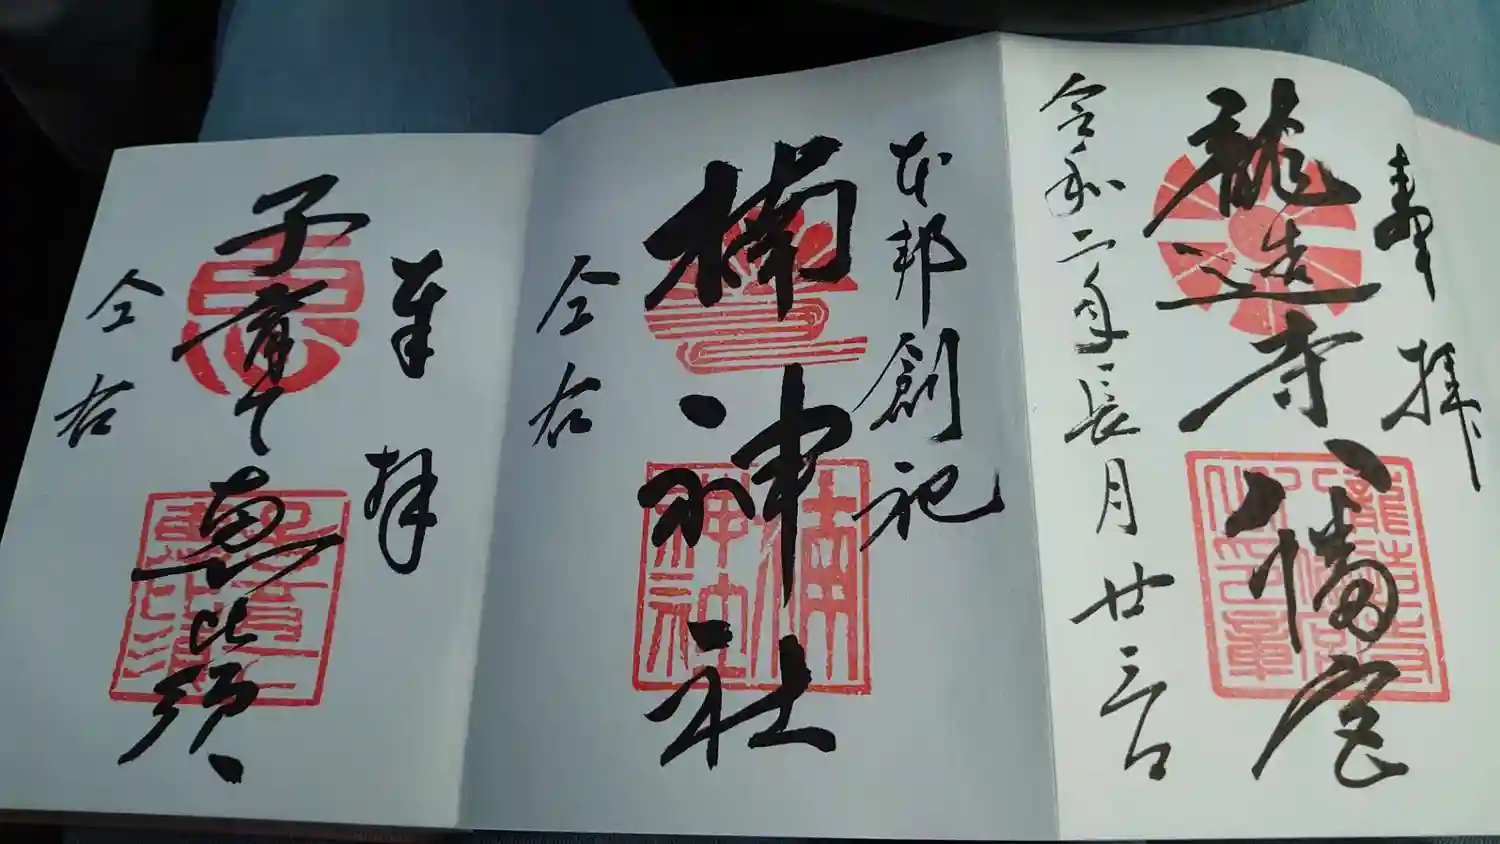 奉拝
龍造寺八幡宮
令和二年長月廿三日
本邦創祀
楠神社
楠神社
仝右
奉拝
子育て恵比須
仝右